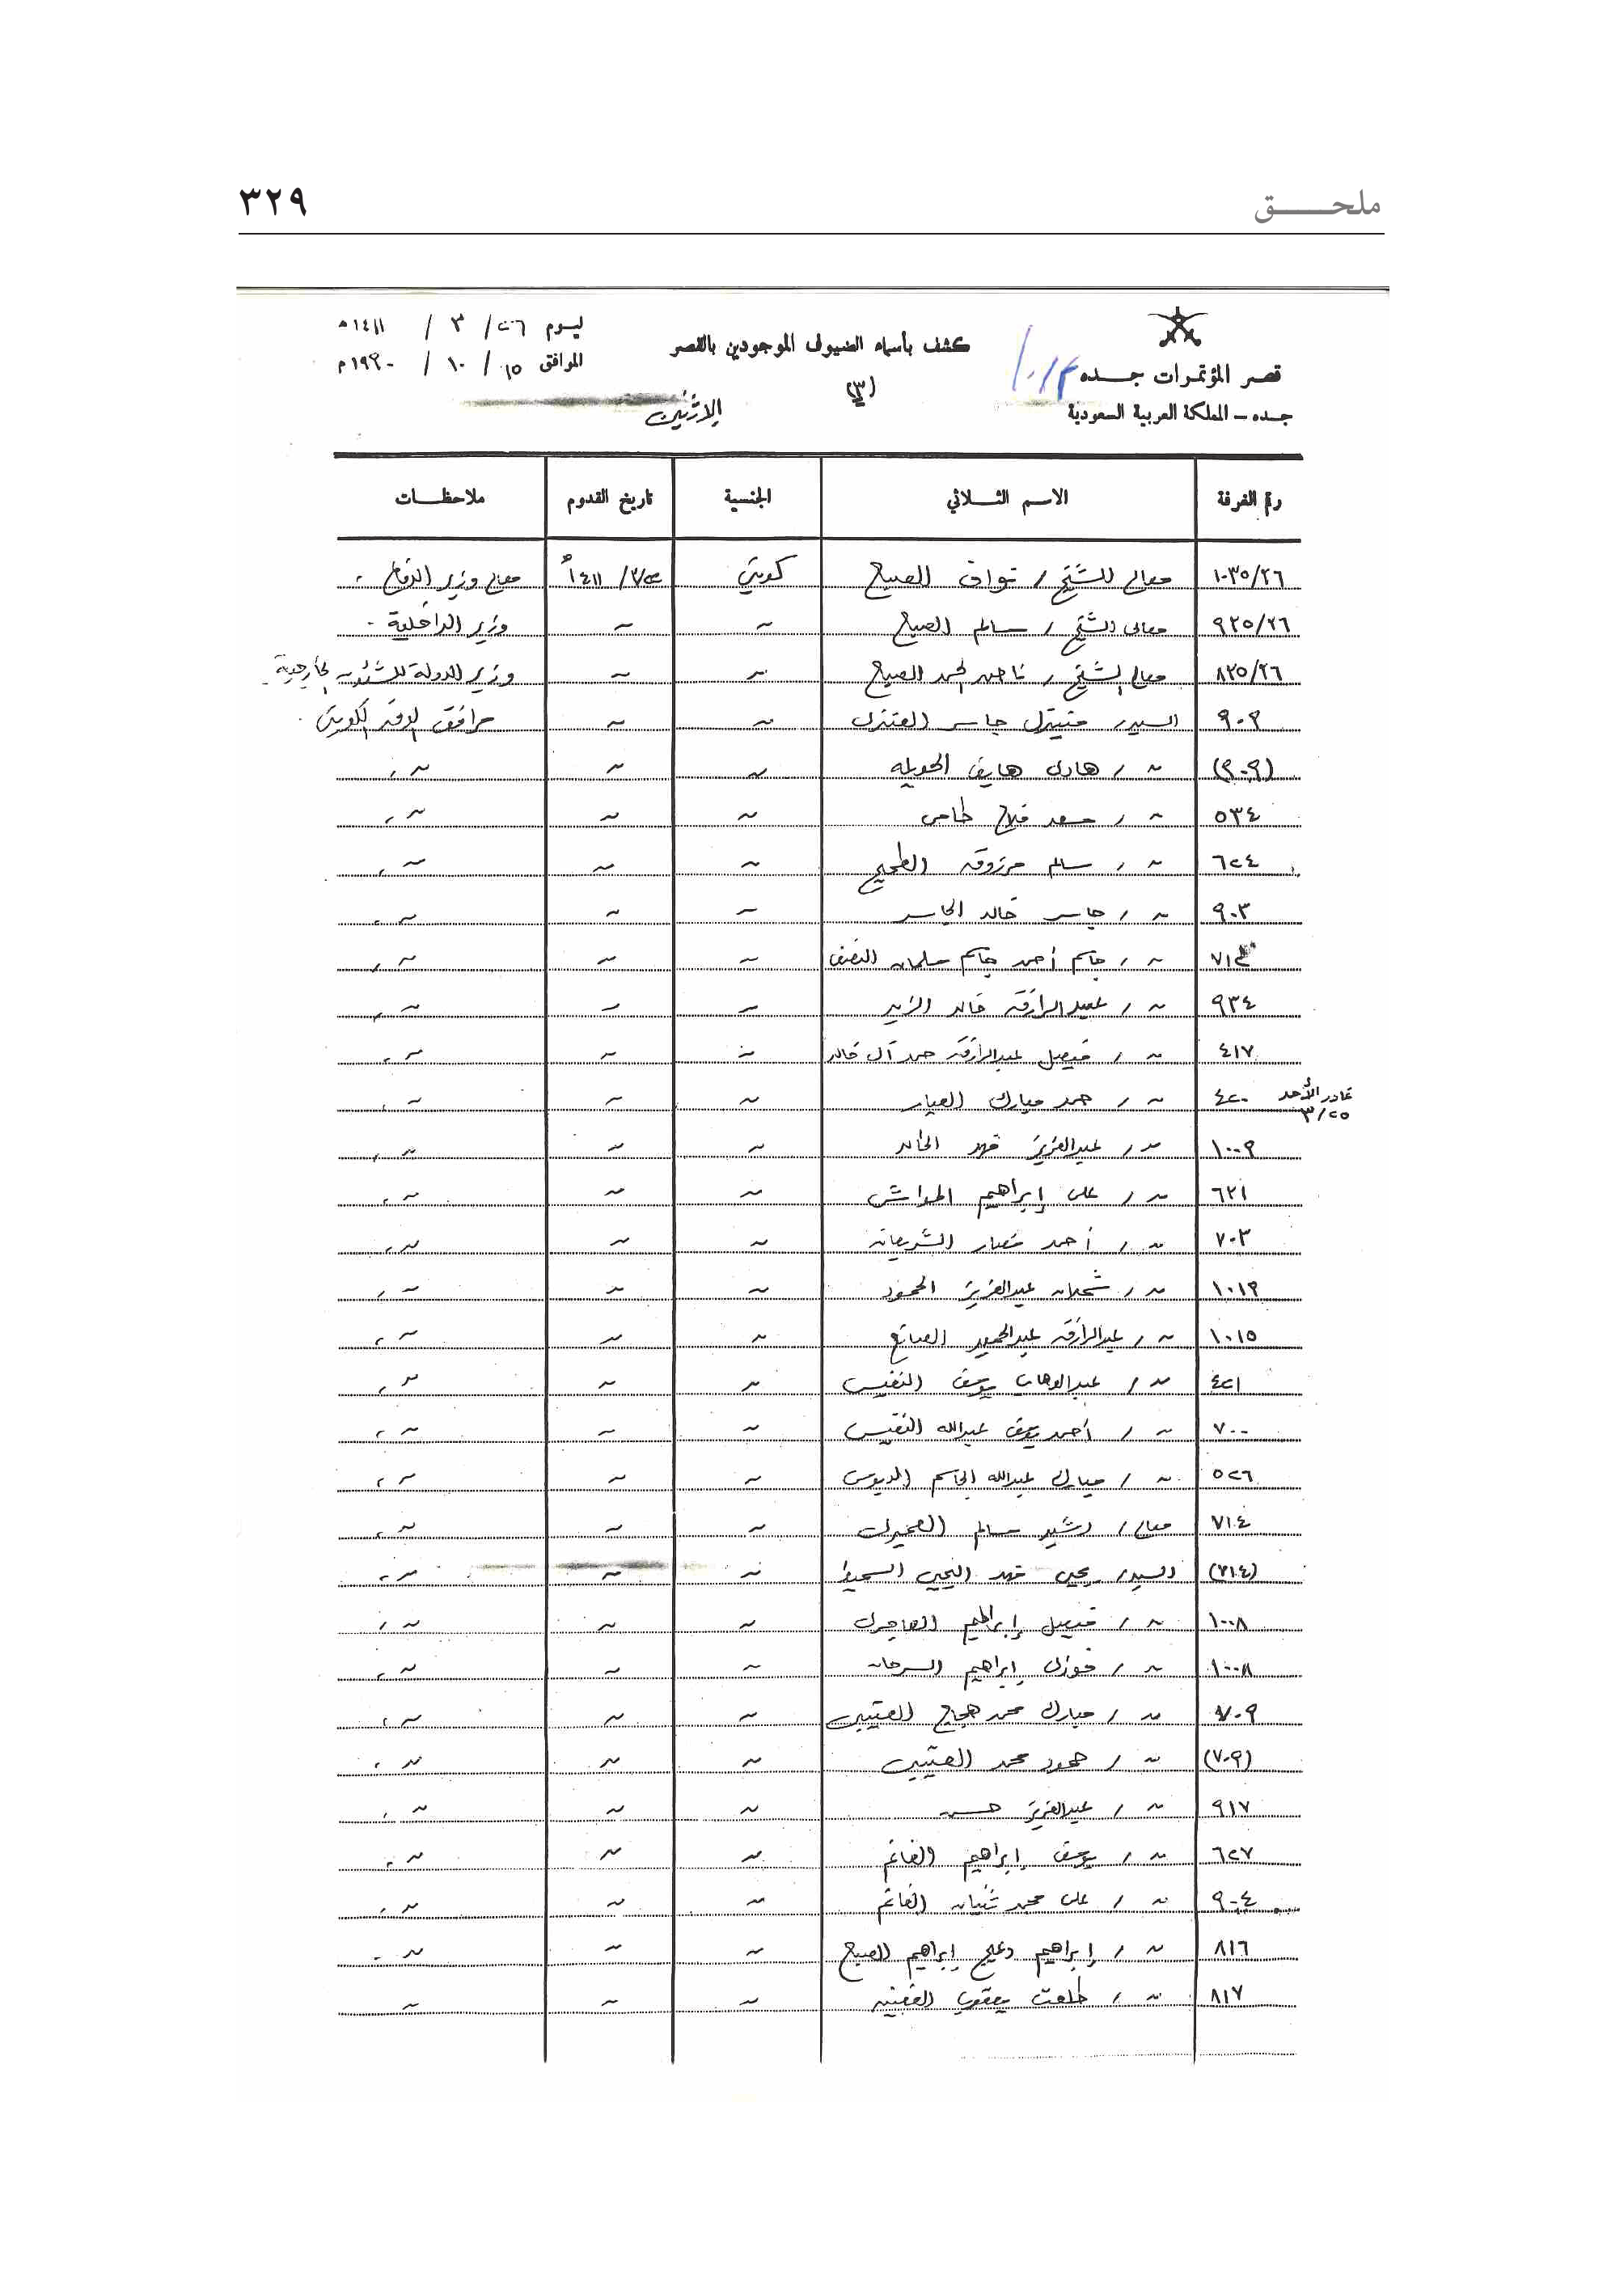 ملحـــق ٣٢٩
قصر المؤتمرات جـــده
جــده – المملكة العربية السعودية
كشف بأسماء الضيوف الموجودين بالقصر
(٣)
ليوم ٢٦ / ٣ / ١٤١١هـ
الموافق ١٥ / ١٠ / ١٩٩٠م
الاثنين
رقم الغرفة الاسم الثـــلاثي الجنسية تاريخ القدوم ملاحظـــات
١٠٣٥/٢٦ معالي الشيخ / نواف الصباح كويتي ١٤١١هـ معالي وزير الدفاع .
٩٢٥/٢٦ معالي الشيخ / سالم الصباح ~ ~ وزير الداخلية .
٨٢٥/٢٦ معالي الشيخ / ناصر المحمد الصباح ~ ~ وزير الدولة للشئون الخارجية
٩٠٩ السيد / جاسر العنزي ~ ~ مرافق الوفد الكويتي .
(٩٠٩) ~ / هادي هايف الحويله ~ ~ ~ ،
٥٣٤ ~ / سعد فلاح طامي ~ ~ ~ ،
٦٢٤ ~ / سالم مرزوق الطحيح ~ ~ ~ ،
٩٠٣ ~ / جاسر خالد الجاسر ~ ~ ~ ،
٧١٤ ~ / جاسم أحمد جاسم سلمان النصف ~ ~ ~ ،
٩٣٤ ~ / عبدالرازق خالد الزير ~ ~ ~ ،
٤١٧ ~ / فيصل عبدالرازق حمد آل خالد ~ ~ ~ ،
غادر الأحد ٣/٢٥
٤٢٠ ~ / حمد مبارك العيار ~ ~ ~ ،
١٠٠٩ ~ / عبدالعزيز فهد الخالد ~ ~ ~ ،
٦٢١ ~ / علي إبراهيم المواش ~ ~ ~ ،
٧٠٣ ~ / أحمد نصار الشريعان ~ ~ ~ ،
١٠١٩ ~ / شعلان عبدالعزيز الحمود ~ ~ ~ ،
١٠١٥ ~ / عبدالرازق عبدالحميد الصانع ~ ~ ~ ،
٤٢١ ~ / عبدالوهاب يوسف النفيسي ~ ~ ~ ،
٧٠٠ ~ / أحمد يوسف عبدالله النفيسي ~ ~ ~ ،
٥٢٦ ~ / مبارك عبدالله الجاسم الدبوس ~ ~ ~ ،
٧١٤ معالي / رشيد سالم العميري ~ ~ ~ ،
(٧١٤) السيد / يحيى فهد اليحيى السميط ~ ~ ~ ،
١٠٠٨ ~ / فيصل إبراهيم الهاجري ~ ~ ~ ،
١٠٠٨ ~ / فوزي إبراهيم السرحان ~ ~ ~ ،
٧٠٩ ~ / مبارك محمد هجاج العتيبي ~ ~ ~ ،
(٧٠٩) ~ / حمود محمد العتيبي ~ ~ ~ ،
٩١٧ ~ / عبدالعزيز حسن ~ ~ ~ ،
٦٢٧ ~ / يوسف إبراهيم الغانم ~ ~ ~ ،
٩٠٤ ~ / علي محمد ثنيان الغانم ~ ~ ~ ،
٨١٦ ~ / إبراهيم دعيج إبراهيم الصباح ~ ~ ~ .
٨١٧ ~ / طلعت يعقوب الغصين ~ ~ ~